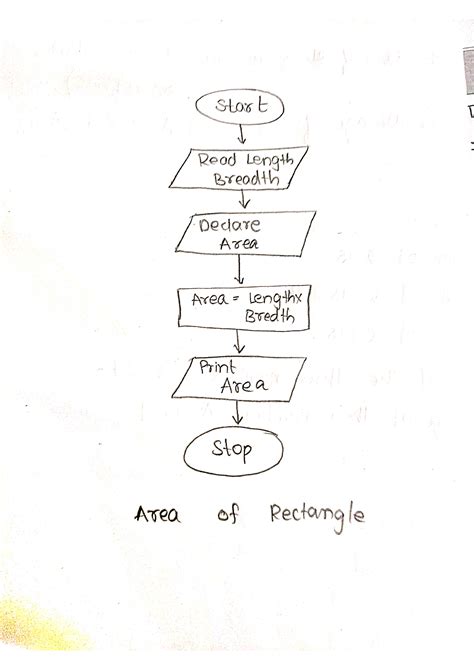 Start
Read Length
Breadth
Declare
Area
Area = Lengthx
Bredth
Print
Area
Stop
Area of Rectangle